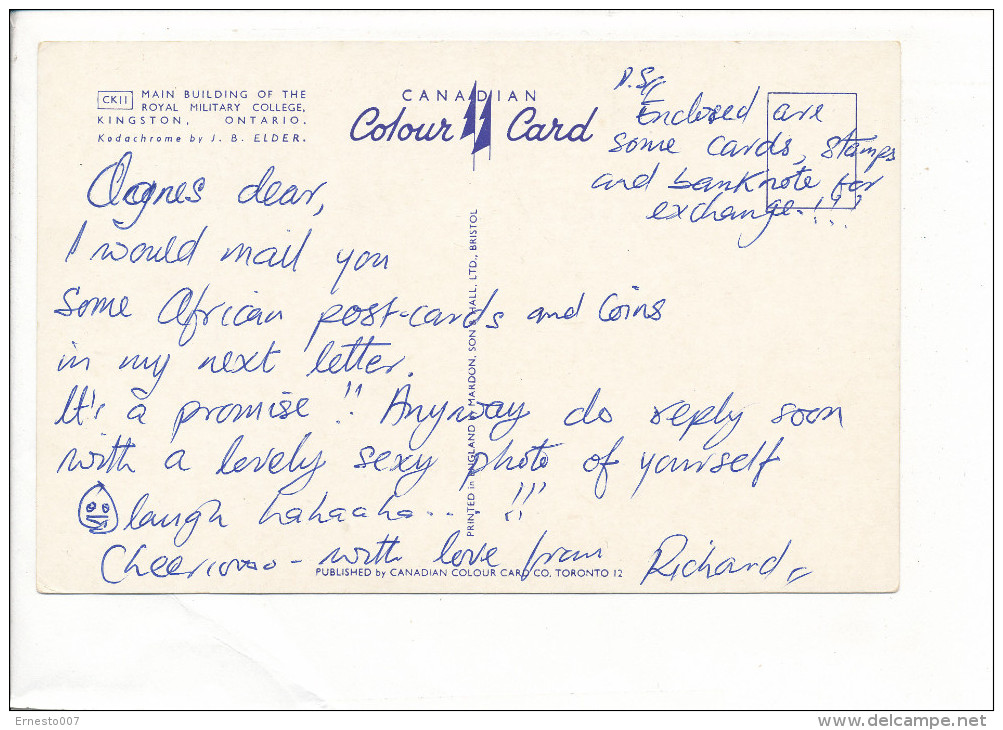 CK11 MAIN BUILDING OF THE
ROYAL MILITARY COLLEGE,
KINGSTON, ONTARIO.
Kodachrome by J. B. ELDER.
CANADIAN
Colour Card
P.S.
Enclosed are
some cards, stamps
and banknote for
exchange.!!!
Agnes dear,
I would mail you
some African post-cards and coins
in my next letter.
It's a promise!! Anyway do reply soon
with a lovely sexy photo of yourself
laugh hahaaha....!!!
Cheeriooo - with love from Richard
PRINTED in ENGLAND by MARDON, SON & HALL, LTD., BRISTOL
PUBLISHED by CANADIAN COLOUR CARD CO. TORONTO 12
Ernesto007
delcampe.net